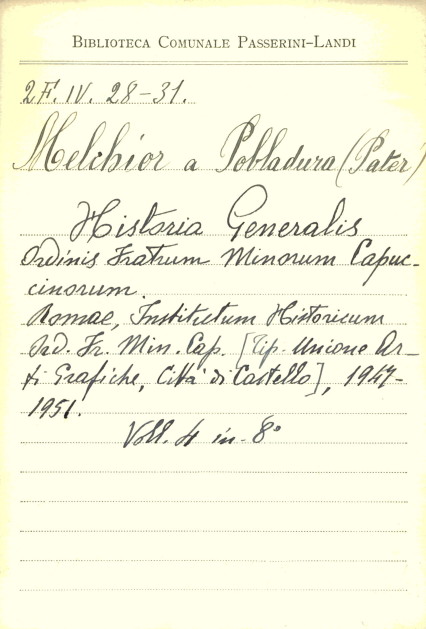 BIBLIOTECA COMUNALE PASSERINI-LANDI
2F. IV. 28-31.
Melchior a Pobladura (Pater)
Historia Generalis
Ordinis Fratrum Minorum Capuc-
cinorum.
Romae, Institutum Historicum
Ord. Fr. Min. Cap. [Tip. Unione Ar-
ti Grafiche, Città di Castello], 1947-
1951.
Voll. 4 in-8°